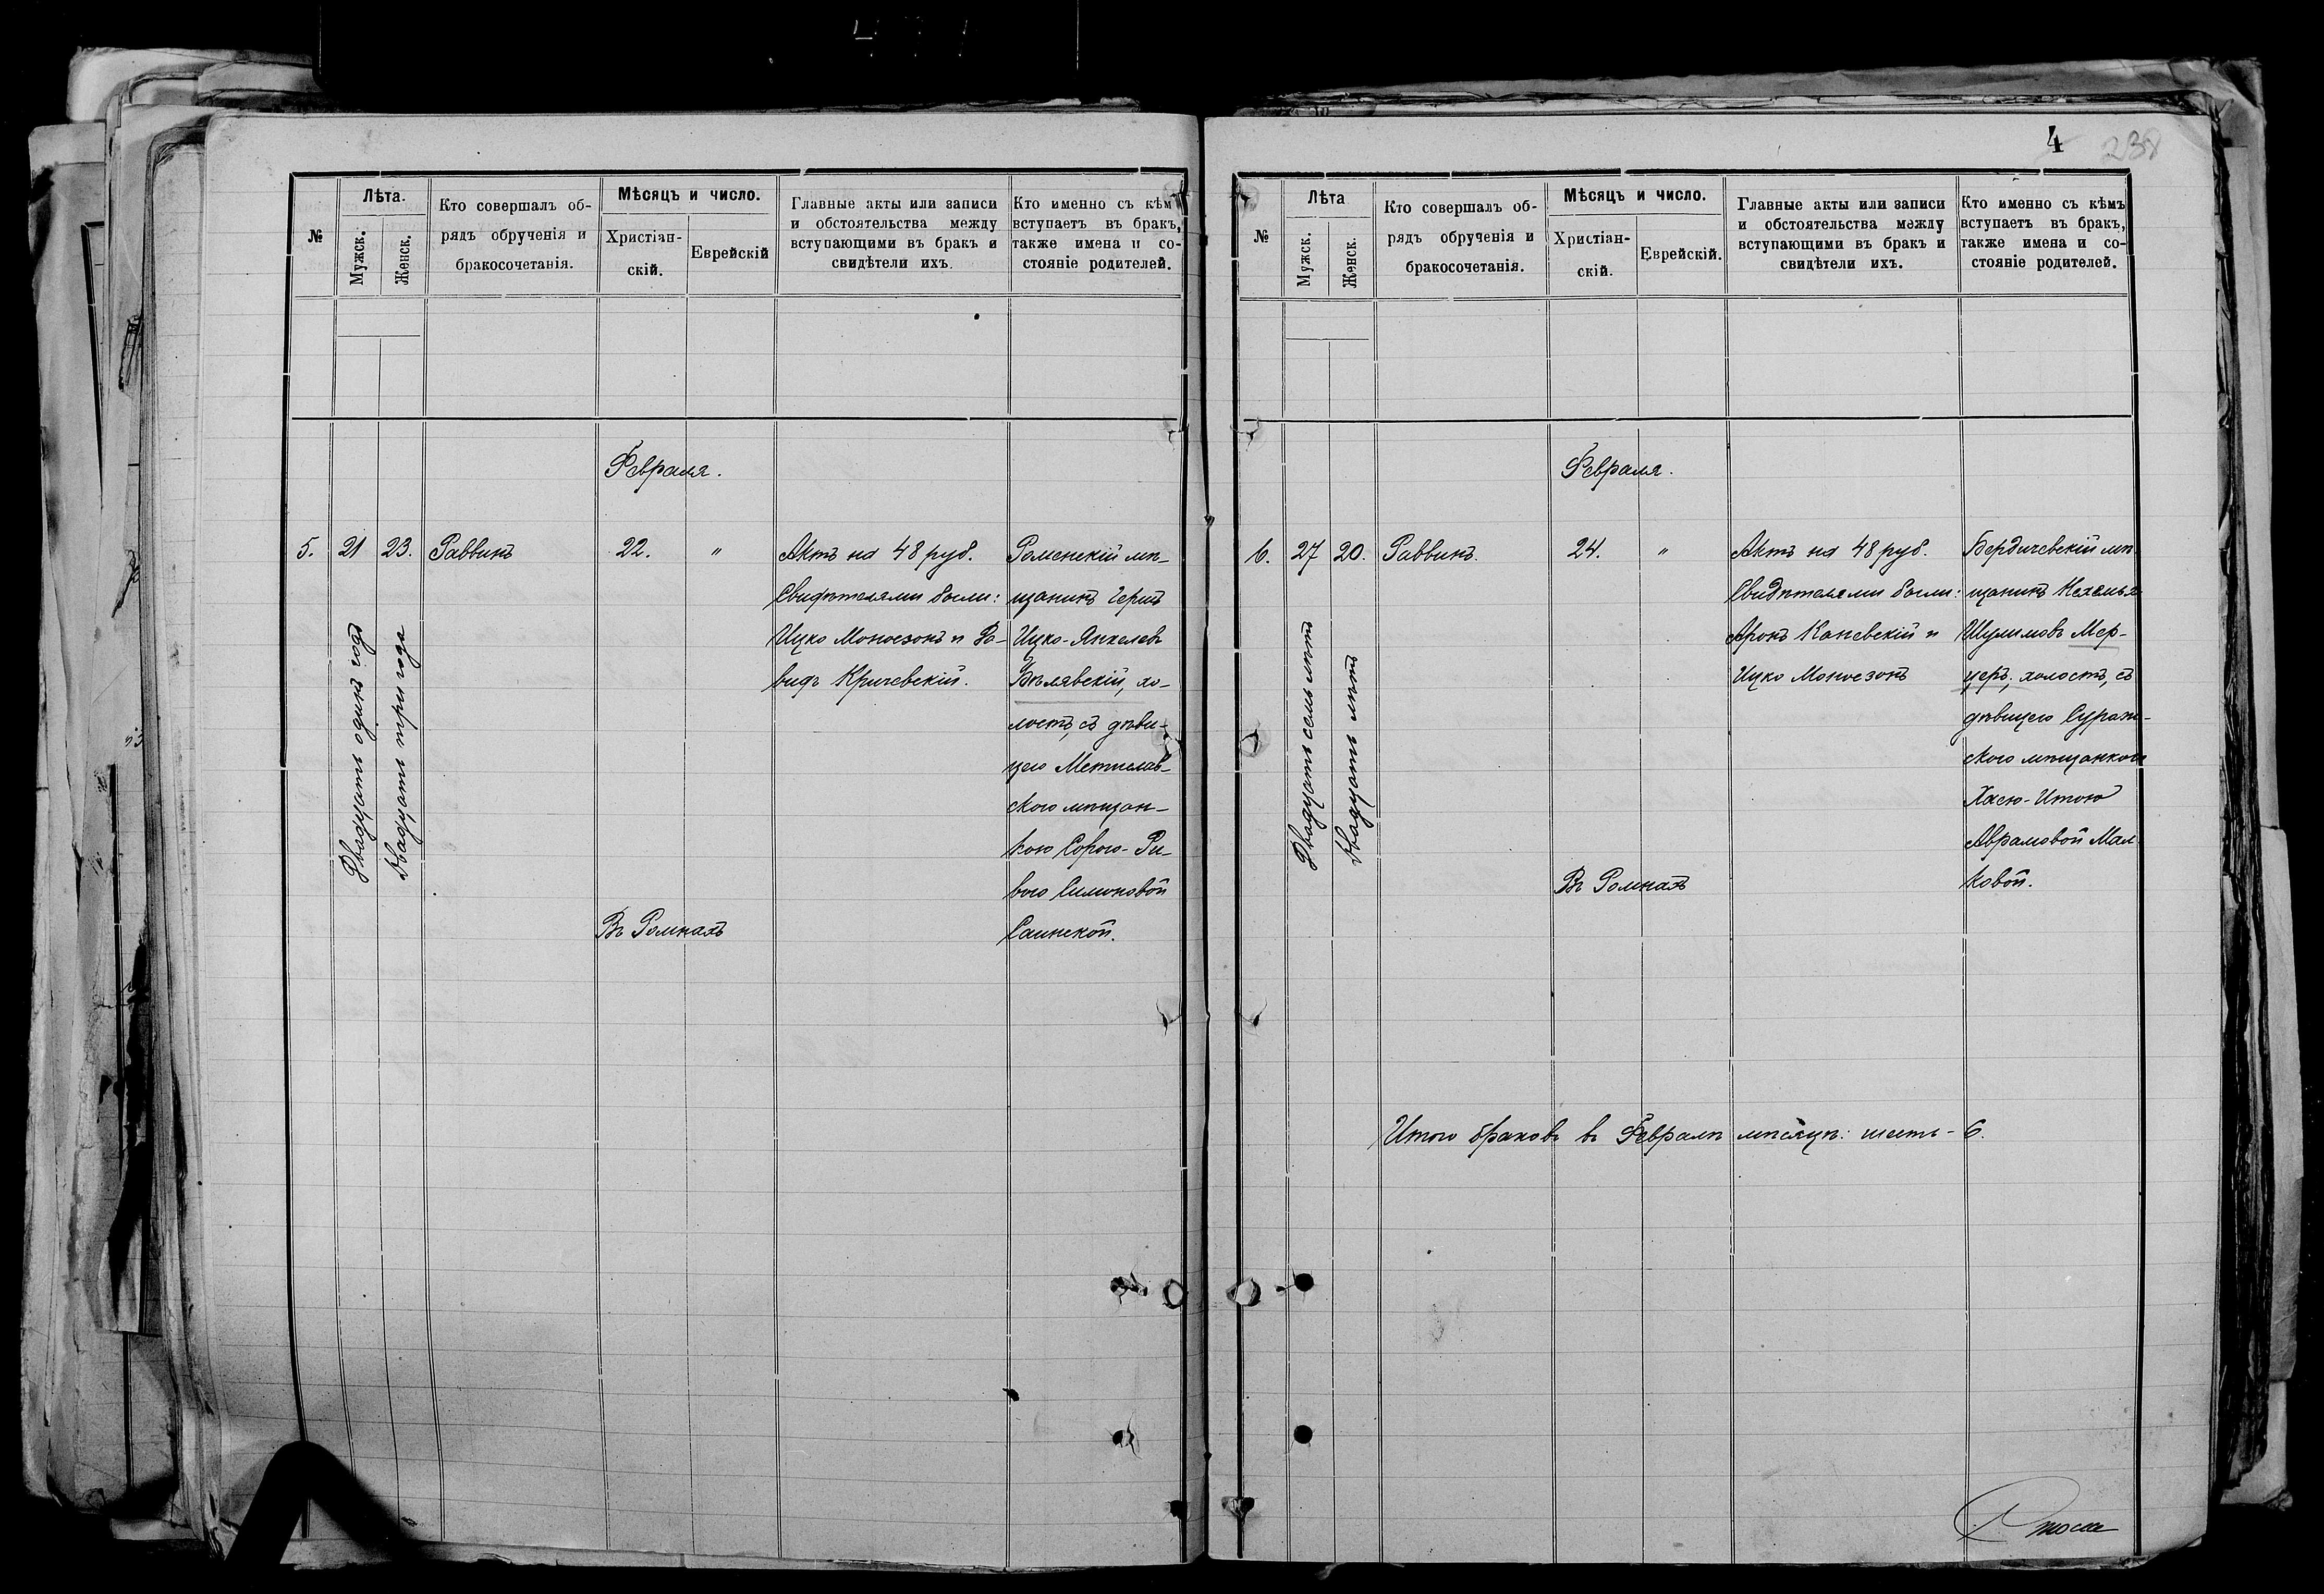 №
Лѣта.
Мужск.
Женск.
Кто совершалъ об-
рядъ обрученія и
бракосочетанія.
Мѣсяцъ и число.
Христіан-
скій.
Еврейскій
Главные акты или записи
и обстоятельства между
вступающими въ бракъ и
свидѣтели ихъ.
Кто именно съ кѣмъ
вступаетъ въ бракъ,
также имена и со-
стояніе родителей.
Февраля.
5.
21
Двадцать одинъ годъ
23.
Двадцать три года
Раввинъ
22.
"
Въ Ромнахъ
Актъ на 48 руб.
Свидѣтелями были:
Ицко Моносзонъ и До-
видъ Кричевскій.
Роменскій мѣ-
щанинъ Гершъ
Ицко-Янкелевъ
Бѣлявскій, хо-
лостъ, съ дѣви-
цею Мстислав-
скою мѣщан-
кою Сорою-Ри-
вою Симоновой
4
238
№
Лѣта
Мужск.
Женск.
Кто совершалъ об-
рядъ обрученія и
бракосочетанія.
Мѣсяцъ и число.
Христіан-
скій.
Еврейскій.
Главные акты или записи
и обстоятельства между
вступающими въ бракъ и
свидѣтели ихъ.
Кто именно съ кѣмъ
вступаетъ въ бракъ,
также имена и со-
стояніе родителей.
Февраля.
6.
27
Двадцать семь лѣтъ
20.
Двадцать лѣтъ
Раввинъ.
24.
"
Въ Ромнахъ
Актъ на 48 руб.
Свидѣтелями были:
Аронъ Каневскій и
Ицко Моносзонъ
Бердичевскій мѣ-
щанинъ
Шулимовъ Мер-
церъ, холостъ, съ
дѣвицею Сураж-
скою мѣщанкою
Хасею-Итою
Аврамовой Мал-
ковой.
Итого браковъ въ Февралѣ мѣсяцѣ: шесть - 6.